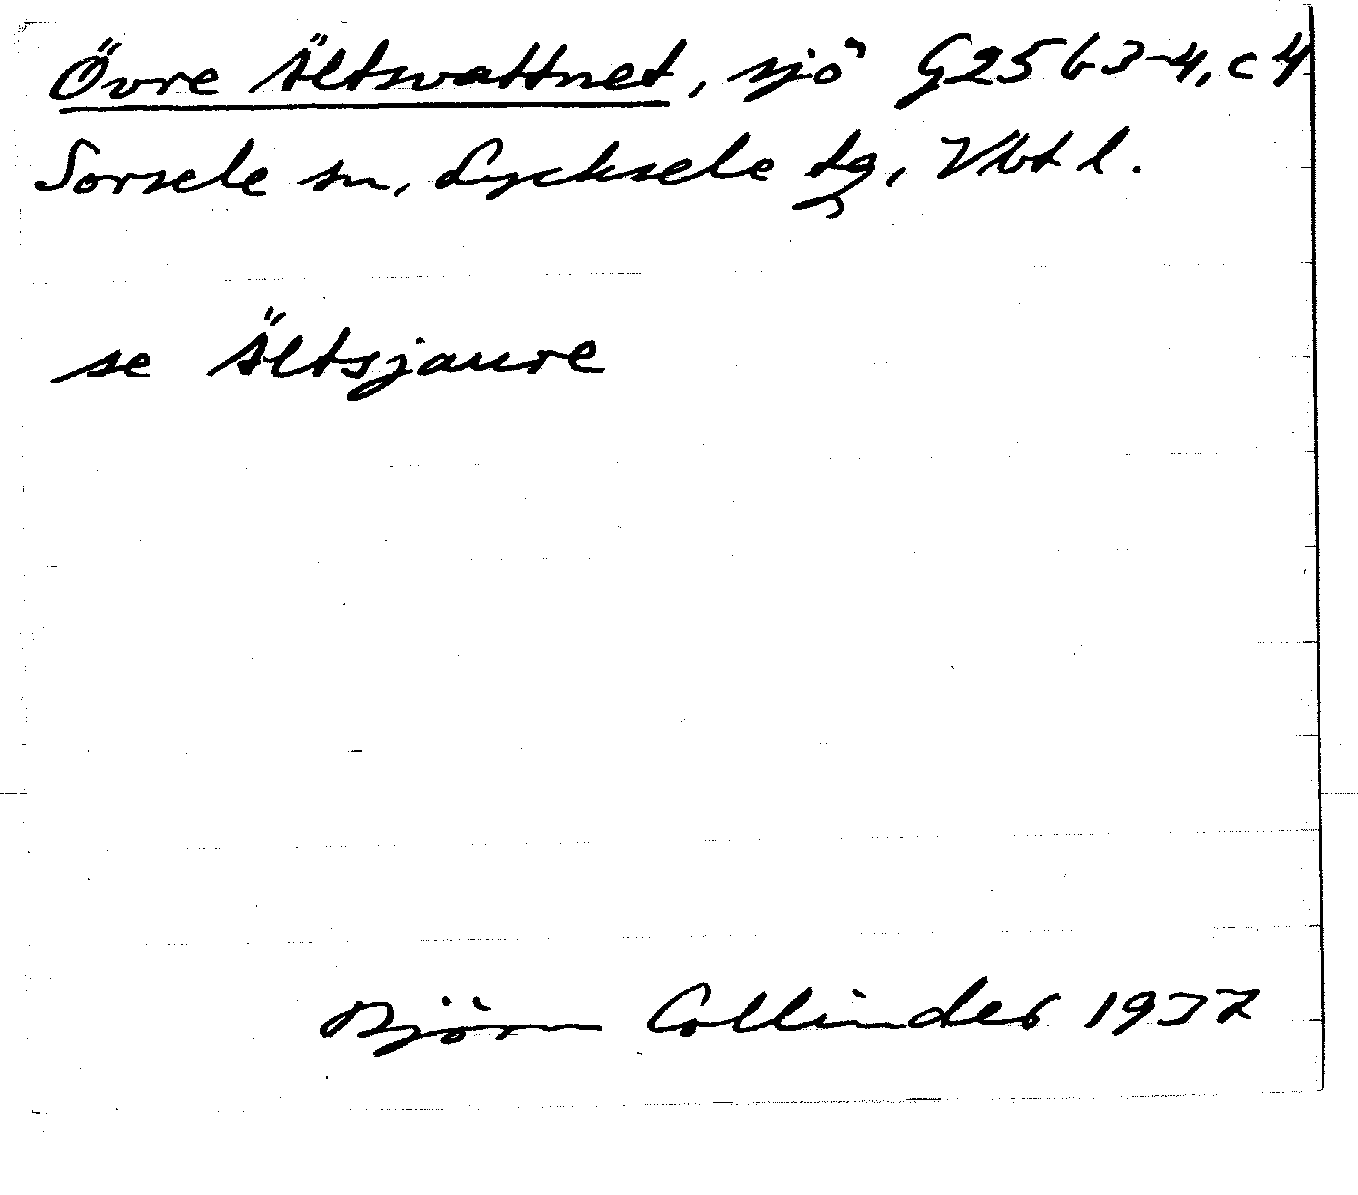 Övre Ältsvattnet, sjö G25 b3-4, c4
Sorsele sn, Lycksele tg, Vbt l.
se Ältsjaure
Björn Collinder 1937